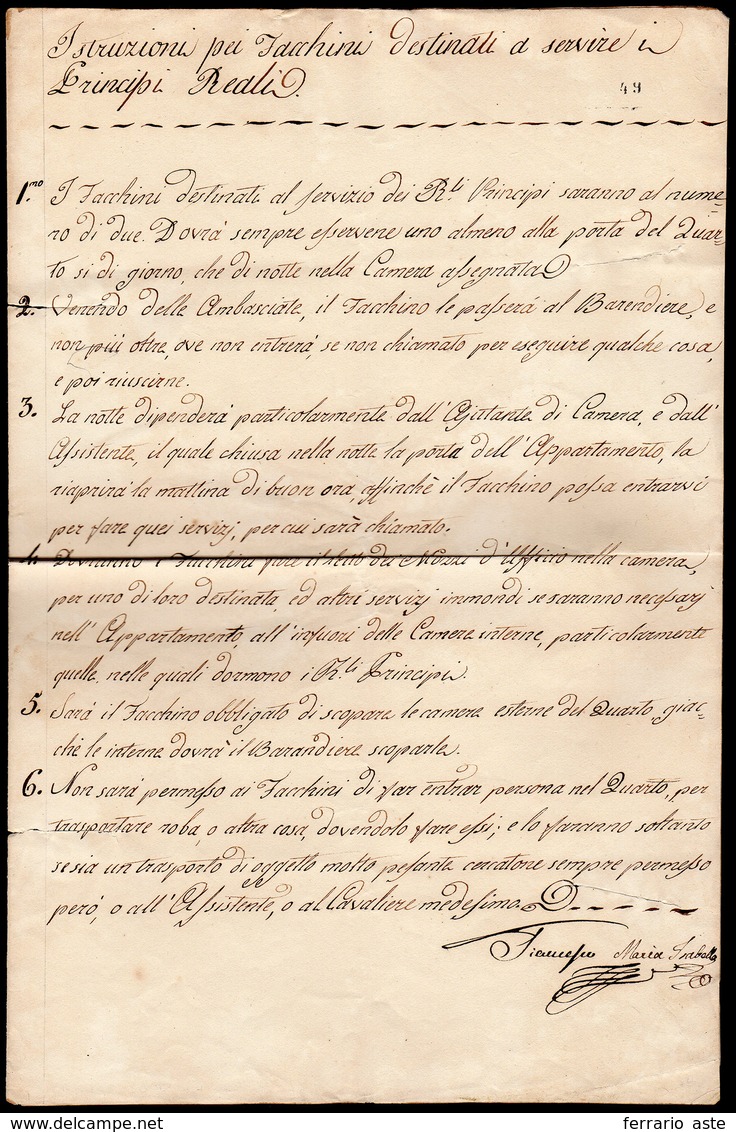 Istruzioni pei Facchini destinati a servire i
Principi Reali.
49
1.mo I Facchini destinati al servizio dei R.li Principi saranno al nume-
ro di due. Dovrà sempre esservene uno almeno alla porta del Quar-
to si di giorno, che di notte nella Camera assegnata
2. Venendo delle Ambasciate, il Facchino le passerà al Barendiere, e
non più oltre, ove non entrerà, se non chiamato per eseguire qualche cosa,
e poi riuscirne.
3. La notte dipenderà particolarmente dall'Ajutante di Camera, e dall'
Assistente, il quale chiusa nella notte la porta dell'Appartamento, la
riaprirà la mattina di buon ora, affinchè il Facchino possa entrarvi
per fare quei servizj, per cui sarà chiamato.
4. Dovranno i Facchini fare il letto dei Mozzi d'Ufficio nella camera,
per uno di loro destinata, ed altri servizj immondi se saranno necessarj
nell'Appartamento, all'infuori delle Camere interne, particolarmente
quelle, nelle quali dormono i R.li Principi.
5. Sarà il Facchino obbligato di scopare le camere esterne del Quarto, giac-
chè le interne dovrà il Barandiere scoparle.
6. Non sarà permesso ai Facchini di far entrar persona nel Quarto, per
trasportare roba, o altra cosa, dovendolo fare essi; e lo faranno soltanto
se sia un trasporto di oggetto molto pesante cercatone sempre permesso
però, o all'Assistente, o al Cavaliere medesimo.
Francesco Maria Isabella
ferrario aste